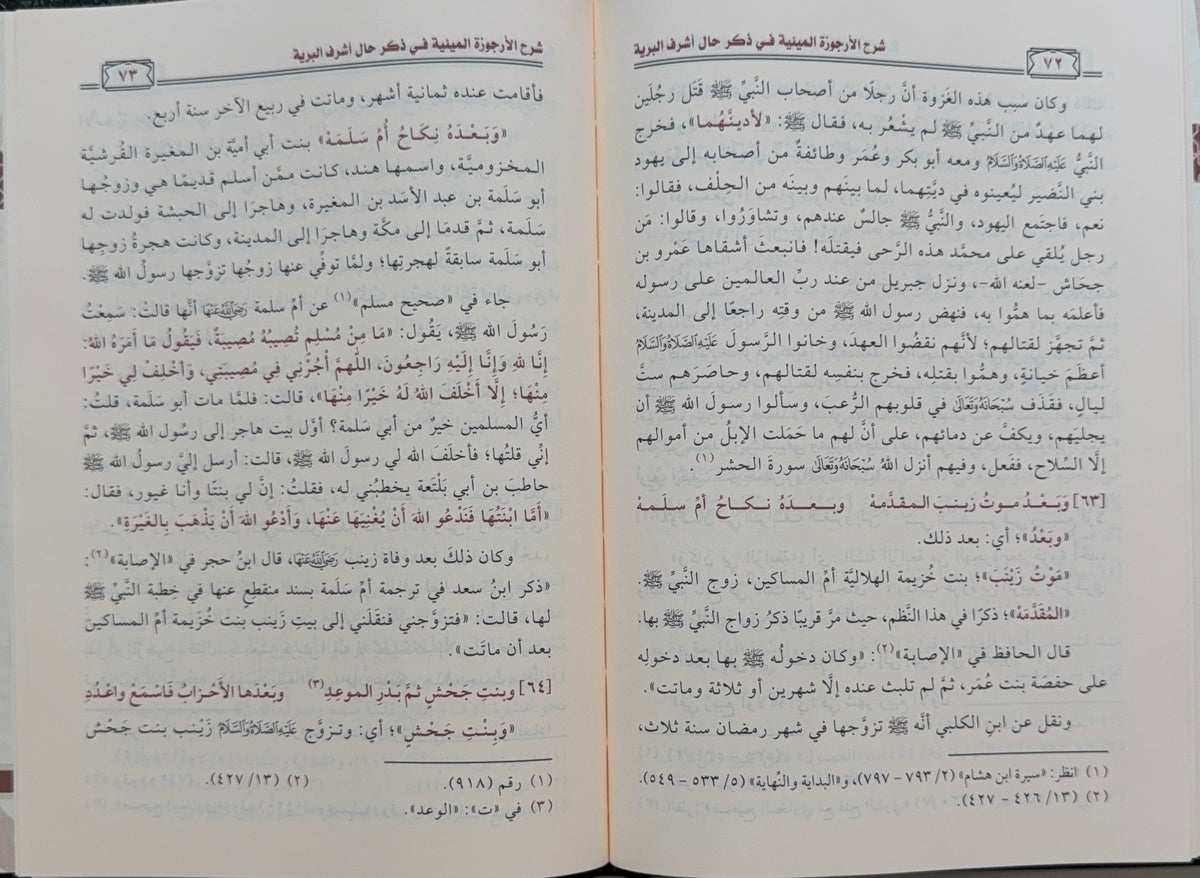 شرح الأرجوزة الميئية في ذكر حال أشرف البرية
٧٢
وكان سبب هذه الغَزوة أنَّ رجلًا من أصحاب النَّبيِّ ﷺ قَتَل رجُلَين
لهما عهدٌ من النَّبيِّ ﷺ لم يشْعُر به، فقال ﷺ: «لأدينَّهُما»، فخرج
النَّبيُّ عَلَيْهِ الصَّلَاةُ وَالسَّلَامُ ومعه أبو بكر وعُمَر وطائفةٌ من أصحابه إلى يهودِ
بني النَّضير ليُعينوه في ديَتِهما، لما بينَهم وبينَه من الحِلْف، فقالوا:
نعم، فاجتَمع اليهود، والنَّبيُّ ﷺ جالسٌ عندهم، وتشاوَرُوا، وقالوا: مَن
رجل يُلقي على محمَّد هذه الرَّحى فيقتلَه! فانبعثَ أشقاها عَمْرو بن
جحَاش -لعنه الله-، ونزل جبريل من عند ربِّ العالمين على رسوله
فأعلمَه بما همُّوا به، فنهض رسول الله ﷺ من وقتِه راجعًا إلى المدينة،
ثمَّ تجهَّز لقتالهم؛ لأنَّهم نقضُوا العهدَ، وخانوا الرَّسول عَلَيْهِ الصَّلَاةُ وَالسَّلَامُ
أعظَمَ خيانةٍ، وهمُّوا بقتلِه، فخرج بنفسِه لقتالهم، وحاصَرَهم ستَّ
ليالٍ، فقذَف سُبْحَانَهُ وَتَعَالَى في قلوبهم الرُّعبَ، وسألوا رسولَ الله ﷺ أن
يجليَهم، ويكفَّ عن دمائهم، على أنَّ لهم ما حَمَلت الإبلُ من أموالهم
إلَّا السِّلاح، ففعل، وفيهم أنزل اللهُ سُبْحَانَهُ وَتَعَالَى سورةَ الحشر(١).
[٦٣] وَبَعْدُ مـوتُ زَيـنبَ المـقدَّمهْ وبـعـدَهُ نـكـاحُ أمِّ سـلمـهْ
«وبَعْدُ»؛ أي: بعد ذلك.
«مَوْتُ زَيْنَبَ»؛ بنت خُزيمة الهلاليَّة أمِّ المساكين، زوج النَّبيِّ ﷺ.
«المُقَدَّمَهْ»؛ ذكرًا في هذا النَّظم، حيث مرَّ قريبًا ذكرُ زواج النَّبيِّ ﷺ بها.
قال الحافظ في «الإصابة»(٢): «وكان دخولُه ﷺ بها بعد دخولِه
على حفصَة بنت عُمَر، ثمَّ لم تلبث عنده إلَّا شهرين أو ثلاثة وماتت».
ونقل عن ابنِ الكلبي أنَّه ﷺ تزوَّجها في شهر رمضان سنة ثلاث،
(١) انظر: «سيرة ابن هشام» (٢/ ٧٩٣ - ٧٩٧)، و«البداية والنِّهاية» (٥/ ٥٣٣ - ٥٤٩).
(٢) (١٣/ ٤٢٦ - ٤٢٧).
شرح الأرجوزة الميئية في ذكر حال أشرف البرية
٧٣
فأقامت عنده ثمانية أشهر، وماتت في ربيع الآخر سنة أربع.
«وَبَـعْـدَهُ نِـكَـاحُ أُمِّ سَـلَـمَهْ» بنت أبي أميَّة بن المغيرة القُرشيَّة
المخزوميَّة، واسمها هند، كانت ممَّن أسلم قديمًا هي وزوجُها
أبو سَلَمة بن عبد الأسَد بن المغيرة، وهاجرَا إلى الحبشة فولدت له
سَلَمة، ثمَّ قدمَا إلى مكَّة وهاجرَا إلى المدينة، وكانت هجرةُ زوجِها
أبو سَلَمة سابقةً لهجرتِها؛ ولمَّا توفِّي عنها زوجُها تزوَّجها رسولُ الله ﷺ.
جاء في «صحيح مسلم»(١) عن أمِّ سلمة رَضِيَ اللهُ عَنْهَا أنَّها قالتْ: سَمِعْتُ
رَسُولَ الله ﷺ، يَقُولُ: «مَا مِنْ مُسْلِمٍ تُصِيبُهُ مُصِيبَةٌ، فَيَقُولُ مَا أَمَرَهُ اللهُ:
إِنَّا لِلهِ وَإِنَّا إِلَيْهِ رَاجِعُونَ، اللَّهُمَّ أْجُرْنِي فِي مُصِيبَتِي، وَأَخْلِفْ لِي خَيْرًا
مِنْهَا؛ إِلَّا أَخْلَفَ اللهُ لَهُ خَيْرًا مِنْهَا»، قالت: فلمَّا مات أبو سَلَمة، قلتُ:
أيُّ المسلمين خيرٌ من أبي سَلَمة؟ أوَّل بيت هاجر إلى رسُول الله ﷺ، ثمَّ
إنِّي قلتُها؛ فأخلَفَ الله لي رسولَ الله ﷺ، قالت: أرسل إليَّ رسولُ الله ﷺ
حاطبَ بن أبي بَلْتَعة يخطبُني له، فقلتُ: إنَّ لي بنتًا وأنا غيور، فقال:
«أَمَّا ابْنَتُهَا فَنَدْعُو اللهَ أَنْ يُغْنِيَهَا عَنْهَا، وَأَدْعُو اللهَ أَنْ يَذْهَبَ بِالغَيْرَةِ».
وكان ذلكَ بعد وفاة زينب رَضِيَ اللهُ عَنْهَا، قال ابنُ حجر في «الإصابة»(٢):
«ذكر ابنُ سعد في ترجمة أمِّ سَلَمة بسند منقطعٍ عنها في خِطبة النَّبيِّ ﷺ
لها، قالت: «فتزوَّجني فنقَلَني إلى بيتِ زينب بنت خُزَيمة أمِّ المساكين
بعد أن ماتَت».
[٦٤] وبنتِ جَحْشٍ ثمَّ بَدْرِ الموعدِ(٣) وبَعْدَها الأَحْزابُ فَاسْمَعْ وَاعْدُدِ
«وَبِنْتِ جَحْشٍ»؛ أي: وتـزوَّج عَلَيْهِ الصَّلَاةُ وَالسَّلَامُ زَيْنب بنت جَحْش
(١) رقم (٩١٨).
(٢) (١٣/ ٤٢٧).
(٣) في «ت»: «الوعد».